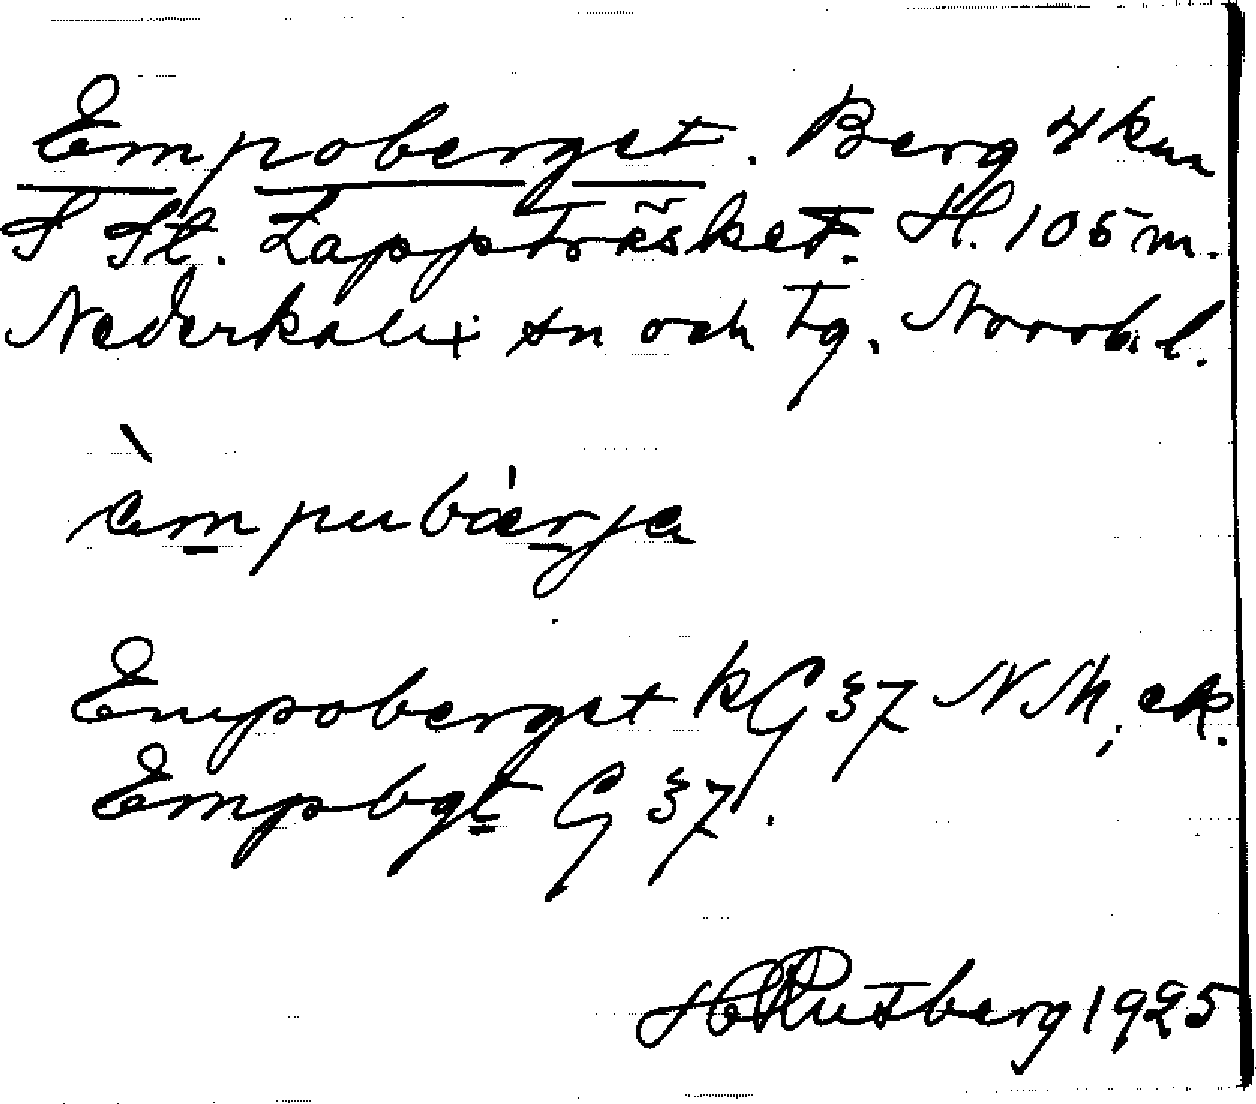 Empoberget. Berg 4 km
S St. Lappträsket. H. 105 m.
Nederkalix sn och tg. Norrb. l.
èmpubærja
Empoberget kG 37 NM, ek.
Empbgt G 37.
H Rutberg 1925